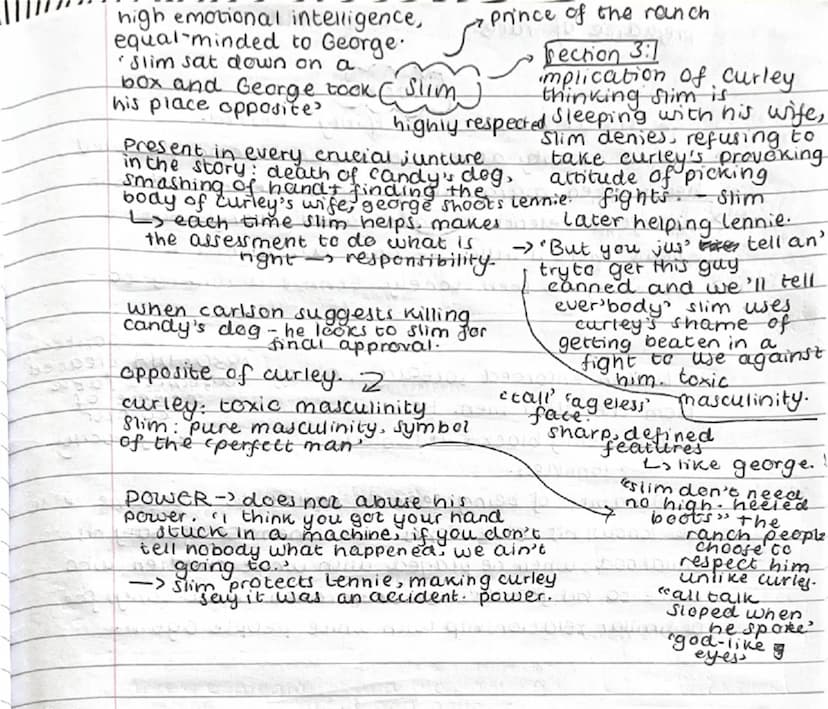 high emotional intelligence,
equal-minded to George.
'slim sat down on a
box and George took
his place opposite'
slim
prince of the ranch
highly respected
Present in every crucial juncture
in the story: death of candy's dog,
smashing of hand + finding the
body of curley's wife, george shoots lennie.
↳ each time slim helps. makes
the assessment to do what is
right → responsibility.
when carlson suggests killing
candy's dog - he looks to slim for
final approval.
opposite of curley.
curley: toxic masculinity
slim: pure masculinity, symbol
of the 'perfect man'
POWER → does not abuse his
power. 'i think you got your hand
stuck in a machine, if you don't
tell nobody what happened, we ain't
going to.'
→ slim protects Lennie, making curley
say it was an accident. power.
section 3:
implication of curley
thinking slim is
sleeping with his wife,
slim denies, refusing to
take curley's provoking
attitude of picking
fights. - slim
later helping lennie.
→ 'But you jus' tell an'
try to get this guy
canned and we'll tell
ever'body' slim uses
curley's shame of
getting beaten in a
fight to use against
him. toxic
masculinity.
'tall' 'ageless'
face.
sharp, defined
features
↳ like george.
"slim don't need
no high-heeled
boots" the
ranch people
choose to
respect him
unlike curley.
"all talk
sloped when
he spoke'
'god-like
eyes'